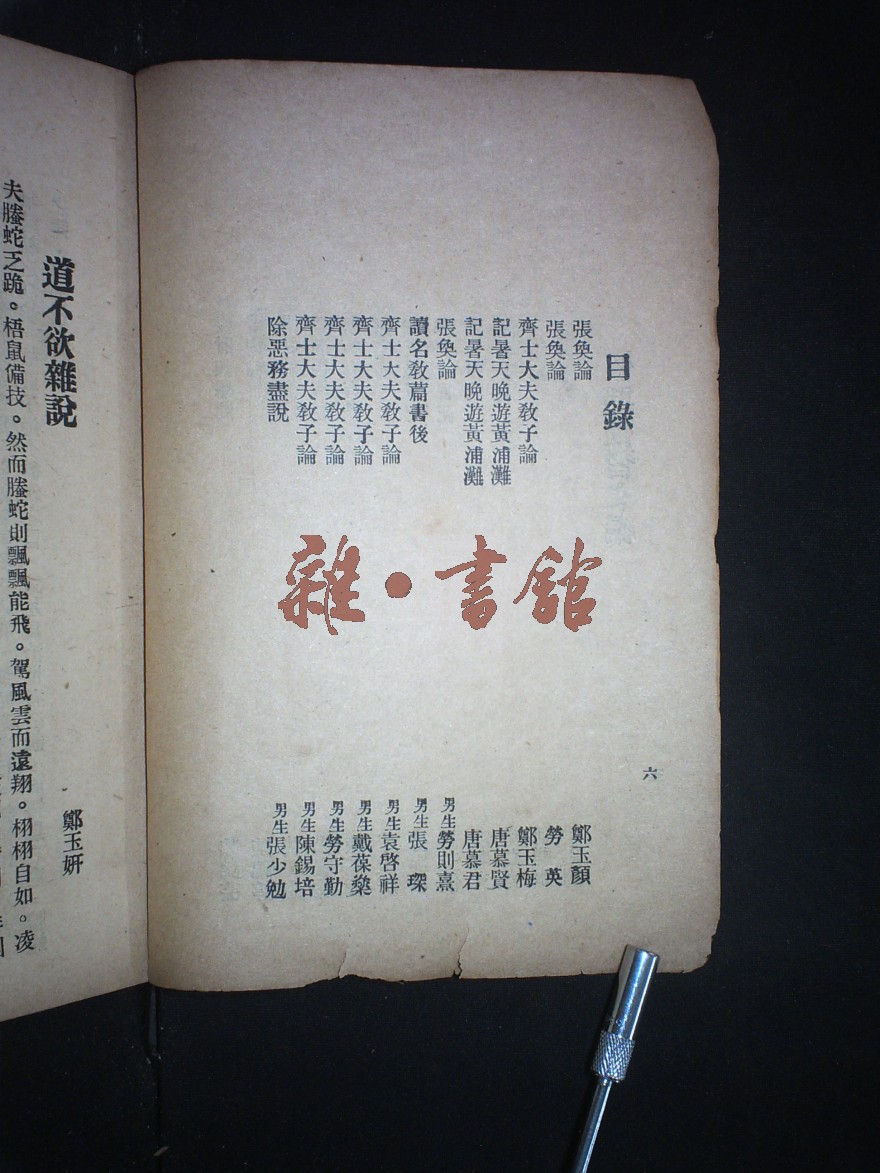 目錄
張奐論 鄭玉顏
張奐論 勞英
齊士大夫敎子論 鄭玉梅
記暑天晚遊黃浦灘 唐慕賢
記暑天晚遊黃浦灘 唐慕君
張奐論 男生勞則熹
讀名敎篇書後 男生張琛
齊士大夫敎子論 男生袁啓祥
齊士大夫敎子論 男生戴葆燊
齊士大夫敎子論 男生勞守勤
齊士大夫敎子論 男生陳錫培
除惡務盡說 男生張少勉
六
雜・書館
道不欲雜說
鄭玉妍
夫螣蛇乏跪。梧鼠備技。然而螣蛇則飄飄能飛。駕風雲而遠翔。栩栩自如。凌